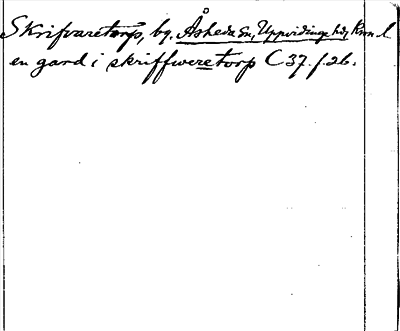 Skrifvaretorp, by. Åsheda sn, Uppvidinge hd, Kron. l
en gard i skriffweretorp C 37. f. 26.